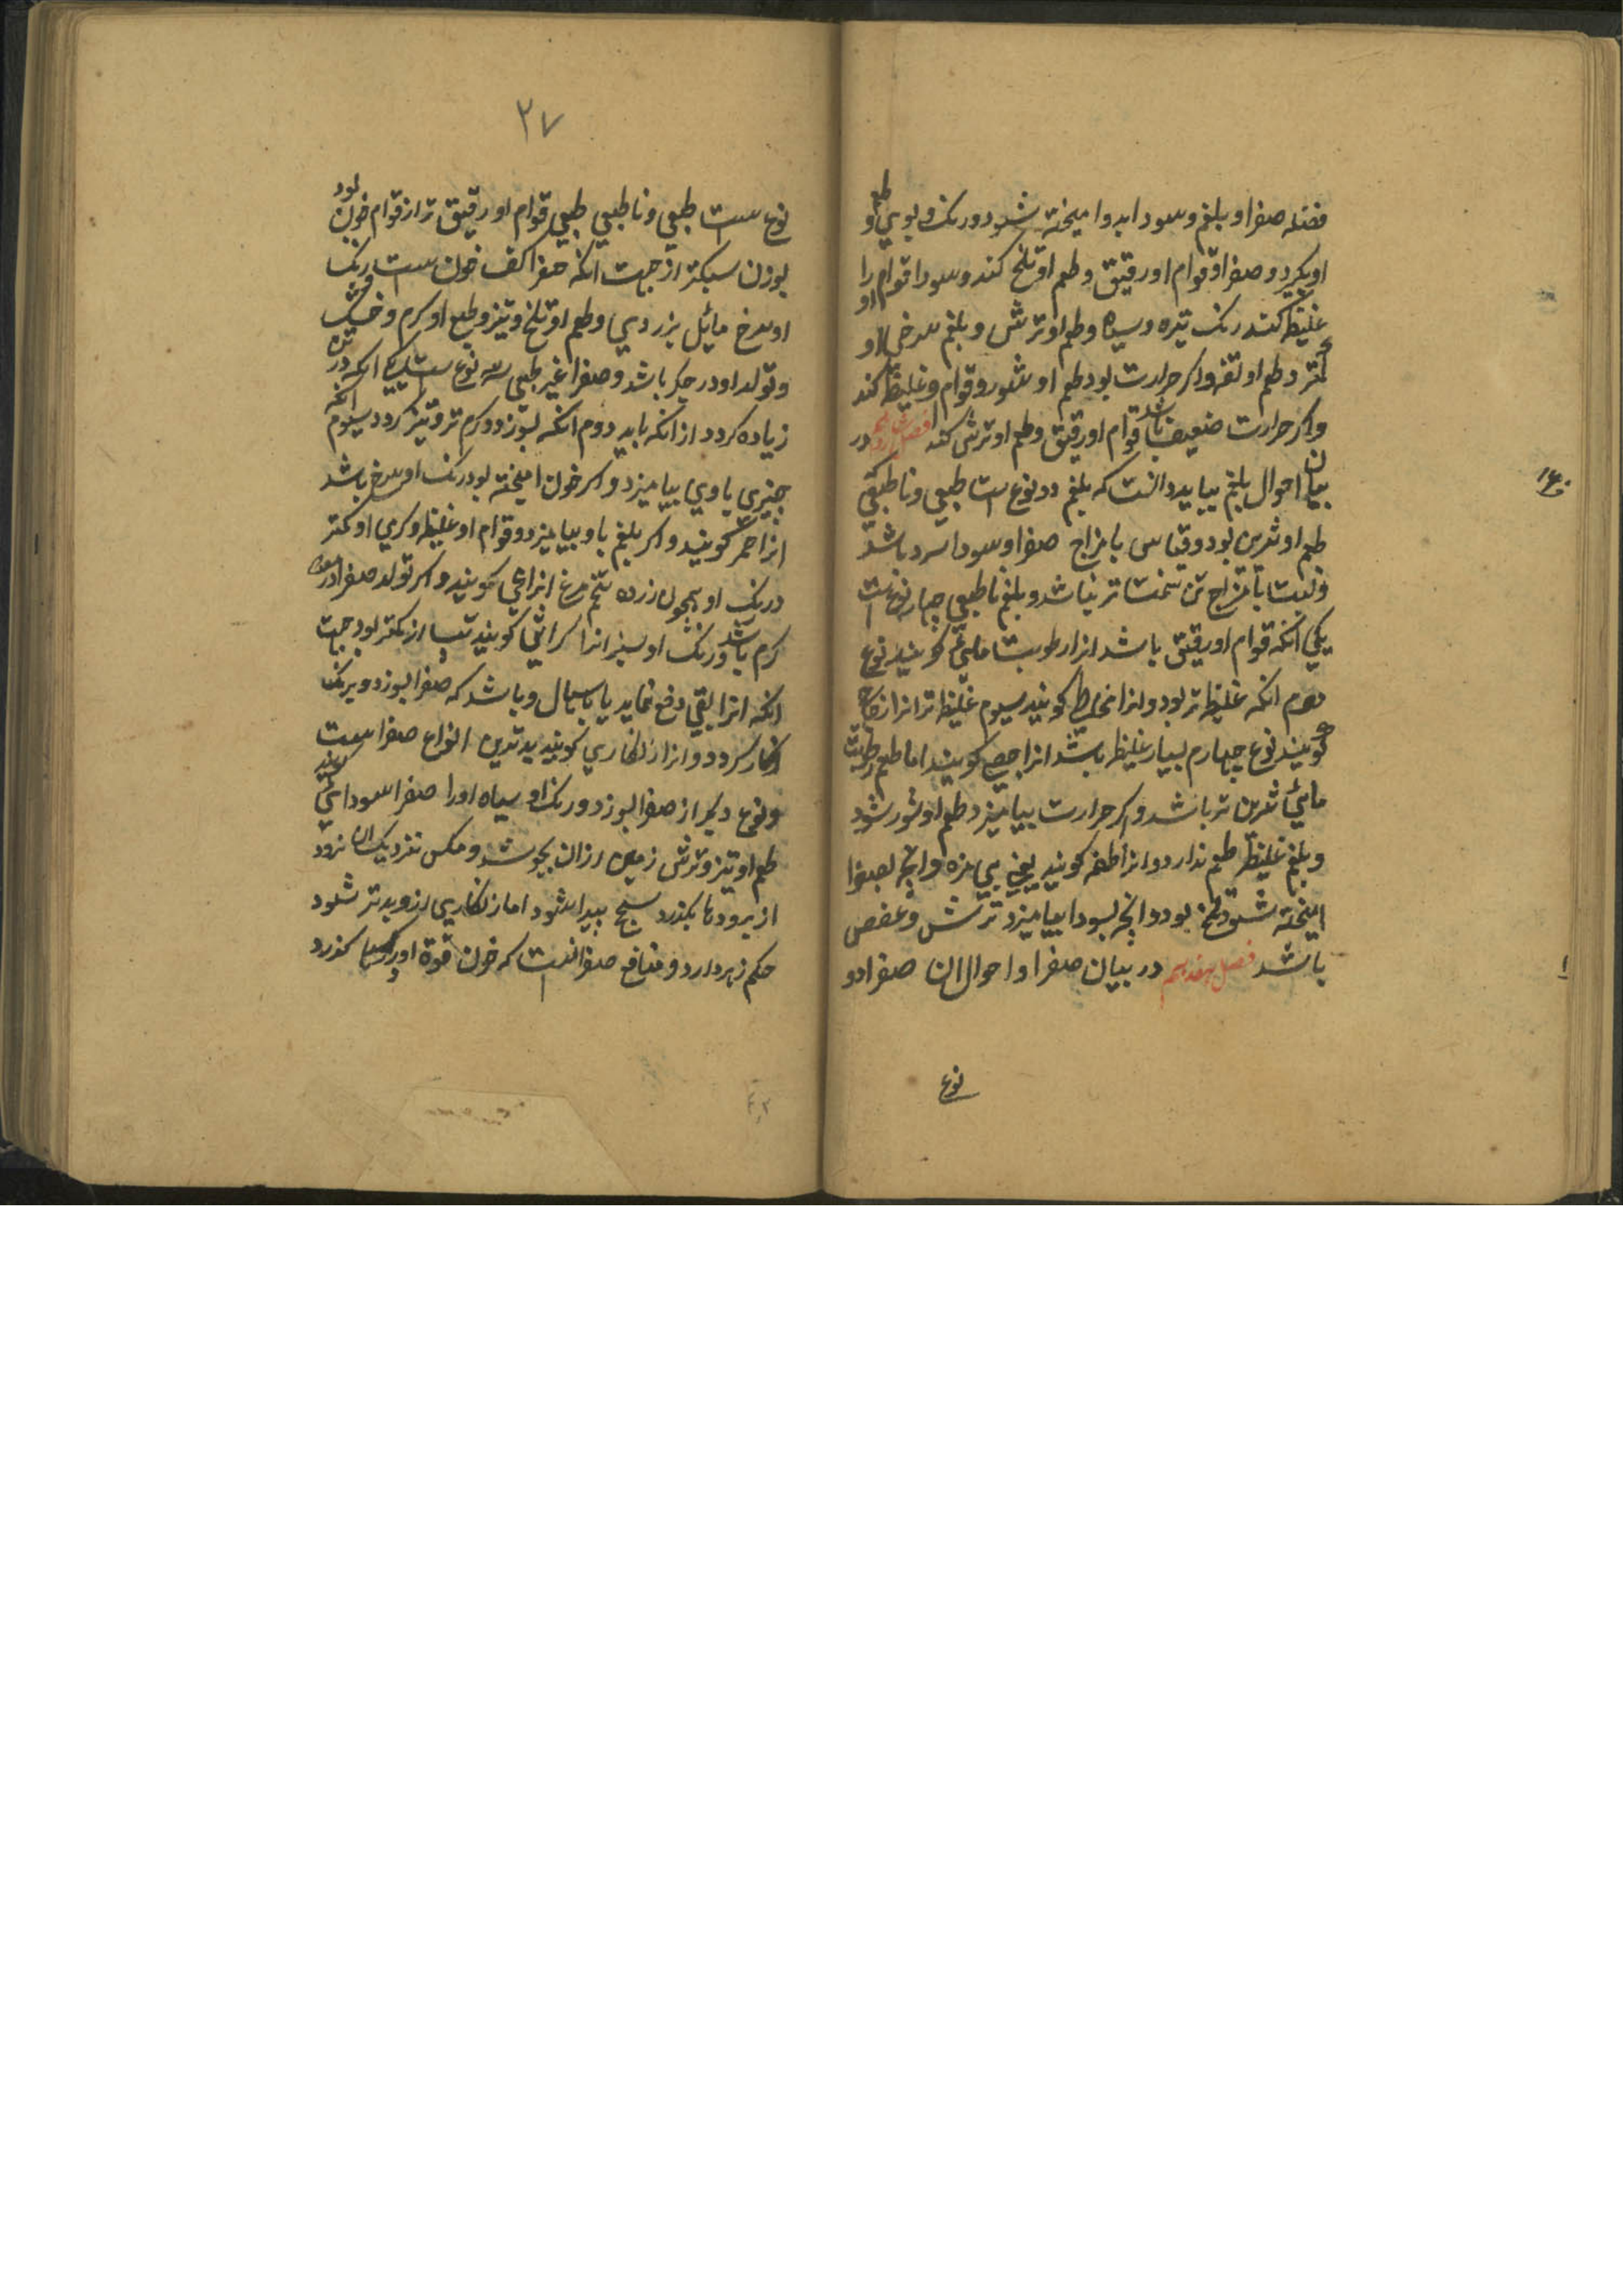 فضله صفرا و بلغم و سودا بدو امیخته شود و رنک و بوی و طعم
او بکیرد و صفرا و قوام او رقیق و طعم او تلخ کند و سودا قوام او را
غلیظ کند رنک تیره و سیاه و طعم او ترش و بلغم سرخی او
کمتر و طعم او تفه و اکر حرارت بود طعم او شور و قوام و غلیظ کند
و اکر حرارت ضعیف باشد قوام او رقیق و طعم او ترش کند فصل در
بیان احوال بلغم بباید دانست که بلغم دو نوع است طبعی و ناطبعی
طعم او شیرین بود و قیاس با مزاج صفرا و سودا سرد باشد
و نسبت با مزاج تن سخت تر نباشد و بلغم ناطبعی چهار نوع است
یکی انکه قوام او رقیق باشد انرا رطوبت مایی کویند نوع
دوم انکه غلیظ تر بود و انرا مخاطی کویند سیوم غلیظ تر انرا زجاجی
کویند نوع چهارم بسیار غلیظ باشد انرا جصی کویند اما طعم رطوبت
مایی شیرین تر باشد و اکر حرارت بیامیزد طعم او شور شود
و بلغم غلیظ طعم ندارد و انرا تفه کویند یعنی بی مزه و انچه بصفرا
امیخته شود تلخ بود و انچه بسودا بیامیزد ترش و عفص
باشد فصل هفدهم در بیان صفرا و احوال ان صفرا دو
نوع
۲۷
نوع ست طبعی و ناطبعی طبعی قوام او رقیق تر از قوام خون بود
بوزن سبکتر از جهت انکه صفرا کف خون ست و رنک
او سرخ مائل بزردی و طعم او تلخ و تیز و طبع او کرم و خشک
و تولد او در جکر باشد و صفرا غیر طبعی سه نوع ست یکی انکه در
زیاده کردد از انکه باید دوم انکه بسوزد و کرم تر و تیز کردد سیوم انکه
چیزی با وی بیامیزد و اکر خون امیخته بود رنک او سرخ باشد
انرا حمر کویند و اکر بلغم باو بیامیزد و قوام او غلیظ و کرمی او کمتر
و رنک او همچون زرده تخم مرغ انرا محی کویند و اکر تولد صفرا در معده
کرم باشد و رنک او سبز انرا کراثی کویند تب از کمتر بود جهت
انکه انرا بقی دفع نماید یا باسهال و باشد که صفرا بسوزد و برنک
زنکار کردد و انرا زنکاری کویند بدترین انواع صفرا ست
و نوع دیکر از صفرا بسوزد و رنک او سیاه او را صفرا سودایی کویند
طعم او تیز و ترش زمین ازان بجوشد و مکس نزدیک ان نرود
از برودها بکذرد سحج پیدا شود اما زنکاری ازو بدتر شود
حکم زهر دارد و منافع صفرا انست که خون قوة او کذرد